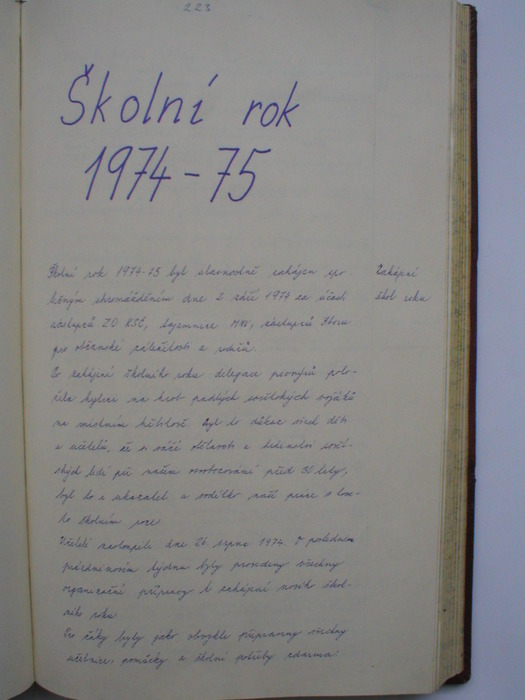 223
Školní rok
1974-75
Školní rok 1974-75 byl slavnostně zahájen spo-
Zahájení
lečným shromážděním dne 2. září 1974 za účasti
škol. roku
zástupců ZO KSČ, tajemnice MNV, zástupců Sboru
pro občanské záležitosti a rodičů.
Po zahájení školního roku delegace pionýrů polo-
žila kytice na hrob padlých sovětských vojáků
na místním hřbitově. Byl to důkaz všech dětí
a učitelů, že si váží oběti a hrdinství sovět-
ských lidí při našem osvobozování před 30 lety,
byl to i ukazatel a vodítko naší práce v tom-
to školním roce.
Učitelé nastoupili dne 26. srpna 1974. V posledním
prázdninovém týdnu byly provedeny všechny
organizační přípravy k zahájení nového škol-
ního roku.
Pro žáky byly jako obvykle připraveny všechny
učebnice, pomůcky a školní potřeby zdarma.